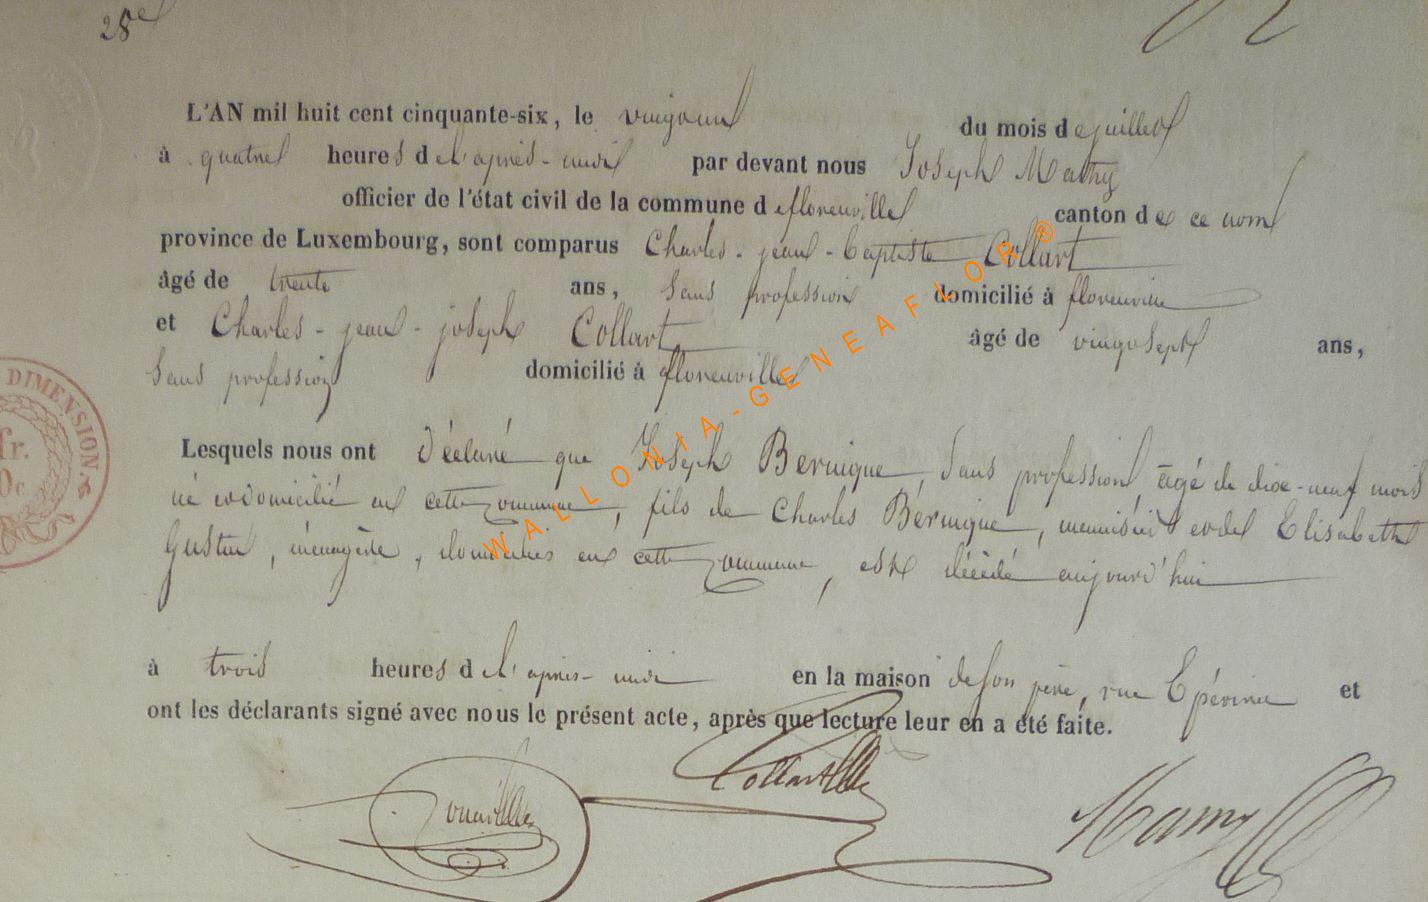 28e
L'AN mil huit cent cinquante-six, le vingt-un du mois de juillet
à quatre heures de l'après-midi par devant nous Joseph Mathy
officier de l'état civil de la commune de florenville canton de ce nom
province de Luxembourg, sont comparus Charles-jean-baptiste Collart
âgé de trente ans, sans profession domicilié à florenville
et Charles-jean-joseph Collart âgé de vingt sept ans,
sans profession domicilié à florenville
Lesquels nous ont déclaré que Joseph Bernique, sans profession, âgé de dix-neuf mois
né et domicilié en cette commune, fils de Charles Bernique, menuisier et de Elisabeth
, ménagère, domiciliés en cette commune, est décédé aujourd'hui
à trois heures de l'après-midi en la maison de son père, rue et
ont les déclarants signé avec nous le présent acte, après que lecture leur en a été faite.
Collart
DIMENSION.
fr.
WALLONIA-GENEAFLOR ®